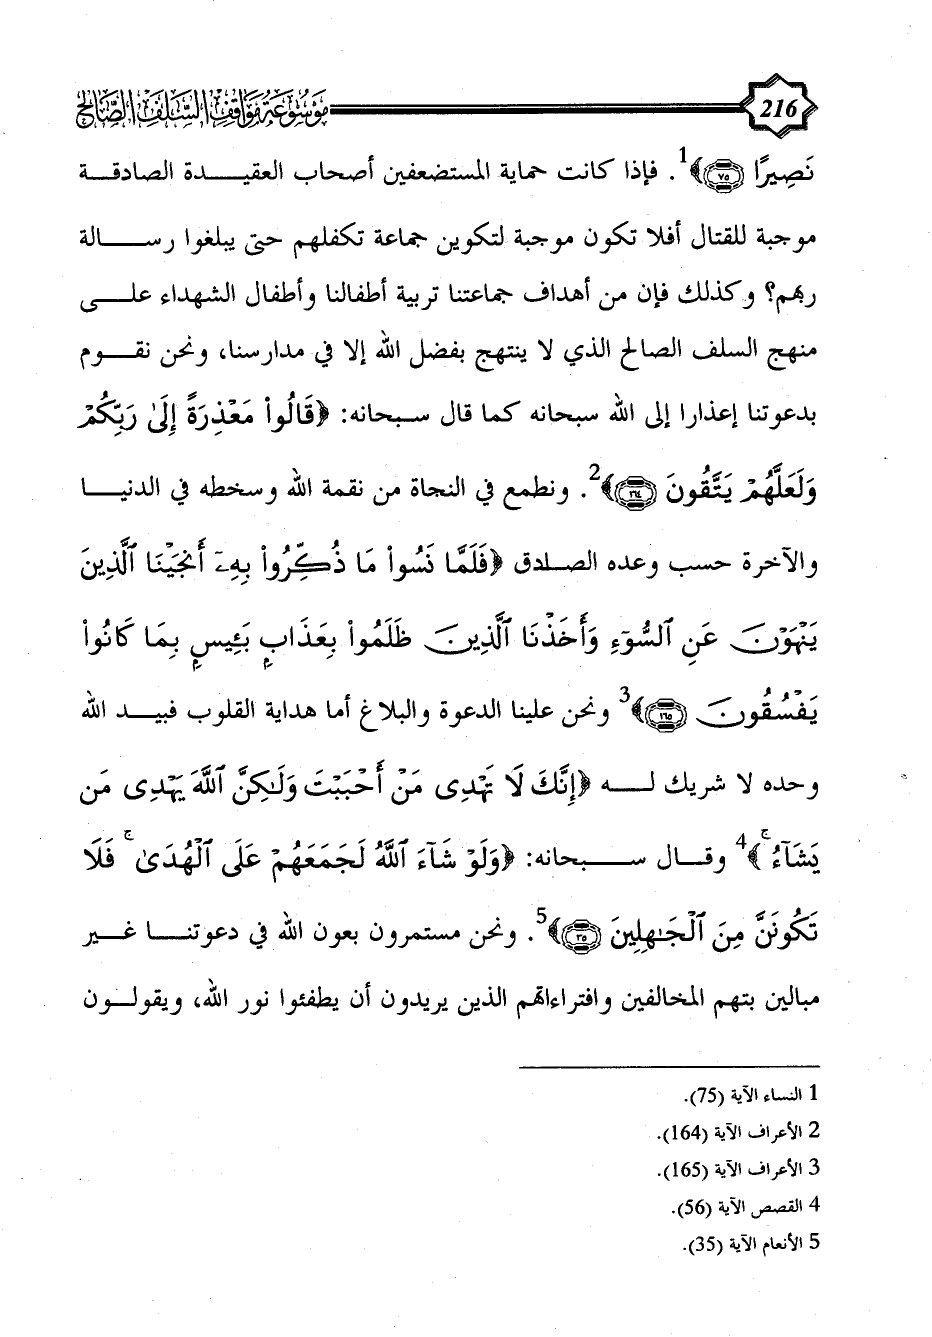 موسوعة مواقف السلف الصالح 216
نَصِيرًا ﴿٧٥﴾1. فإذا كانت حماية المستضعفين أصحاب العقيدة الصادقة
موجبة للقتال أفلا تكون موجبة لتكوين جماعة تكفلهم حتى يبلغوا رسالة
ربهم؟ وكذلك فإن من أهداف جماعتنا تربية أطفالنا وأطفال الشهداء على
منهج السلف الصالح الذي لا ينتهج بفضل الله إلا في مدارسنا، ونحن نقوم
بدعوتنا إعذارا إلى الله سبحانه كما قال سبحانه: ﴿قَالُوا۟ مَعْذِرَةً إِلَىٰ رَبِّكُمْ
وَلَعَلَّهُمْ يَتَّقُونَ ﴿١٦٤﴾2. ونطمع في النجاة من نقمة الله وسخطه في الدنيا
والآخرة حسب وعده الصادق ﴿فَلَمَّا نَسُوا۟ مَا ذُكِّرُوا۟ بِهِۦٓ أَنجَيْنَا ٱلَّذِينَ
يَنْهَوْنَ عَنِ ٱلسُّوٓءِ وَأَخَذْنَا ٱلَّذِينَ ظَلَمُوا۟ بِعَذَابٍۭ بَـِٔيسٍۭ بِمَا كَانُوا۟
يَفْسُقُونَ ﴿١٦٥﴾3 ونحن علينا الدعوة والبلاغ أما هداية القلوب فبيد الله
وحده لا شريك له ﴿إِنَّكَ لَا تَهْدِى مَنْ أَحْبَبْتَ وَلَـٰكِنَّ ٱللَّهَ يَهْدِى مَن
يَشَآءُ ۚ﴾4 وقال سبحانه: ﴿وَلَوْ شَآءَ ٱللَّهُ لَجَمَعَهُمْ عَلَى ٱلْهُدَىٰ ۚ فَلَا
تَكُونَنَّ مِنَ ٱلْجَـٰهِلِينَ ﴿٣٥﴾5. ونحن مستمرون بعون الله في دعوتنا غير
مبالين بتهم المخالفين وافتراءاتهم الذين يريدون أن يطفئوا نور الله، ويقولون
1 النساء الآية (75).
2 الأعراف الآية (164).
3 الأعراف الآية (165).
4 القصص الآية (56).
5 الأنعام الآية (35).